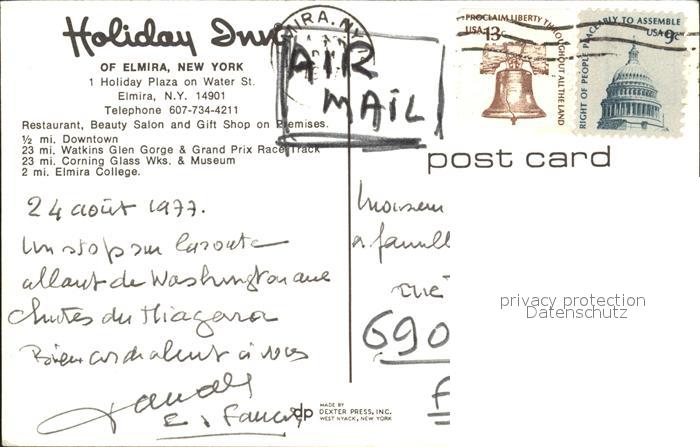 Holiday Inn
OF ELMIRA, NEW YORK
1 Holiday Plaza on Water St.
Elmira, N.Y. 14901
Telephone 607-734-4211
Restaurant, Beauty Salon and Gift Shop on Premises.
½ mi. Downtown
23 mi. Watkins Glen Gorge & Grand Prix Race Track
23 mi. Corning Glass Wks. & Museum
2 mi. Elmira College.
AIR
MAIL
PROCLAIM LIBERTY THROUGHOUT ALL THE LAND
USA 13c
RIGHT OF PEOPLE PEACEABLY TO ASSEMBLE
USA 9c
post card
24 août 1977.
Un stop sur la route
allant de Washington aux
chutes du Niagara
Bien cordialement à vous
E.
MADE BY
dp DEXTER PRESS, INC.
WEST NYACK, NEW YORK
Monsieur
& famill
690
F
privacy protection
Datenschutz